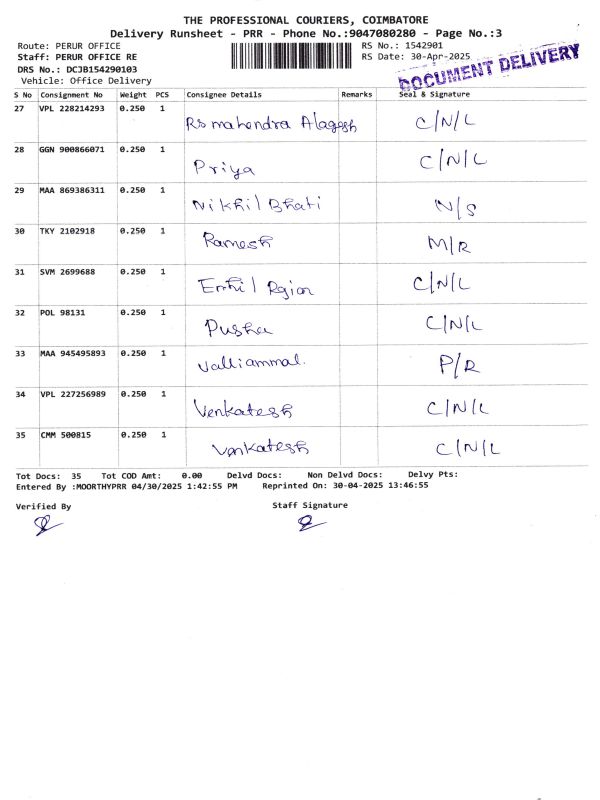 THE PROFESSIONAL COURIERS, COIMBATORE
Delivery Runsheet - PRR - Phone No.:9047080280 - Page No.:3
Route: PERUR OFFICE RS No.: 1542901
Staff: PERUR OFFICE RE RS Date: 30-Apr-2025
DRS No.: DCJB154290103
Vehicle: Office Delivery
DOCUMENT DELIVERY
S No Consignment No Weight PCS Consignee Details Remarks Seal & Signature
27 VPL 228214293 0.250 1 Rs mahendra Alagesh C/N/L
28 GGN 900866071 0.250 1 Priya C/N/L
29 MAA 869386311 0.250 1 Nikhil Bhati N/S
30 TKY 2102918 0.250 1 Ramesh M/R
31 SVM 2699688 0.250 1 C/N/L
32 POL 98131 0.250 1 Pusha C/N/L
33 MAA 945495893 0.250 1 Valliammal. P/R
34 VPL 227256989 0.250 1 Venkatesh C/N/L
35 CMM 500815 0.250 1 Venkatesh C/N/L
Tot Docs: 35 Tot COD Amt: 0.00 Delvd Docs: Non Delvd Docs: Delvy Pts:
Entered By :MOORTHYPRR 04/30/2025 1:42:55 PM Reprinted On: 30-04-2025 13:46:55
Verified By Staff Signature